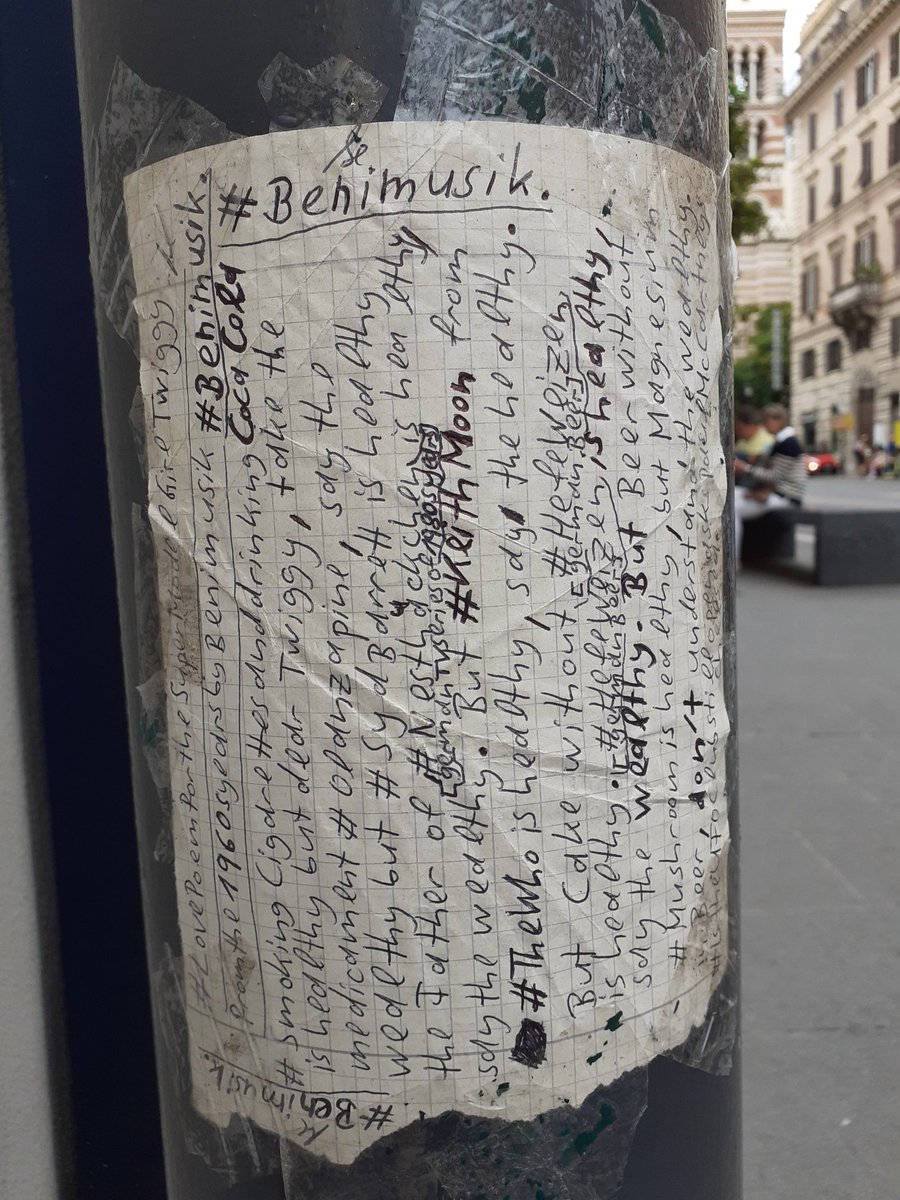 #Benimusik.
#LovePoemForthesuperModel Twiggy
From the 1960syearsbyBenimusik #Benimusik.
#smoking CigarettesandDrinking Coca Cola
is healthy but dear Twiggy, take the
medicament #olanzapine, say the
wealthy but #SydBarrett is healthy
the Father of #Nesthäckchen is healthy
say the wealthy. But #VierthMoon from
#TheWho is healthy, say, the healthy.
But Cake without #Hefeweizen
[germanBeer]
is healthy. #Hefeweizen, is healthy,
[germanBeer]
say the wealthy. But Beer without
#Mushroom is healthy, but Magnesium
- Beer, don't understand, the wealthy.
#Benimusik
Benimusik